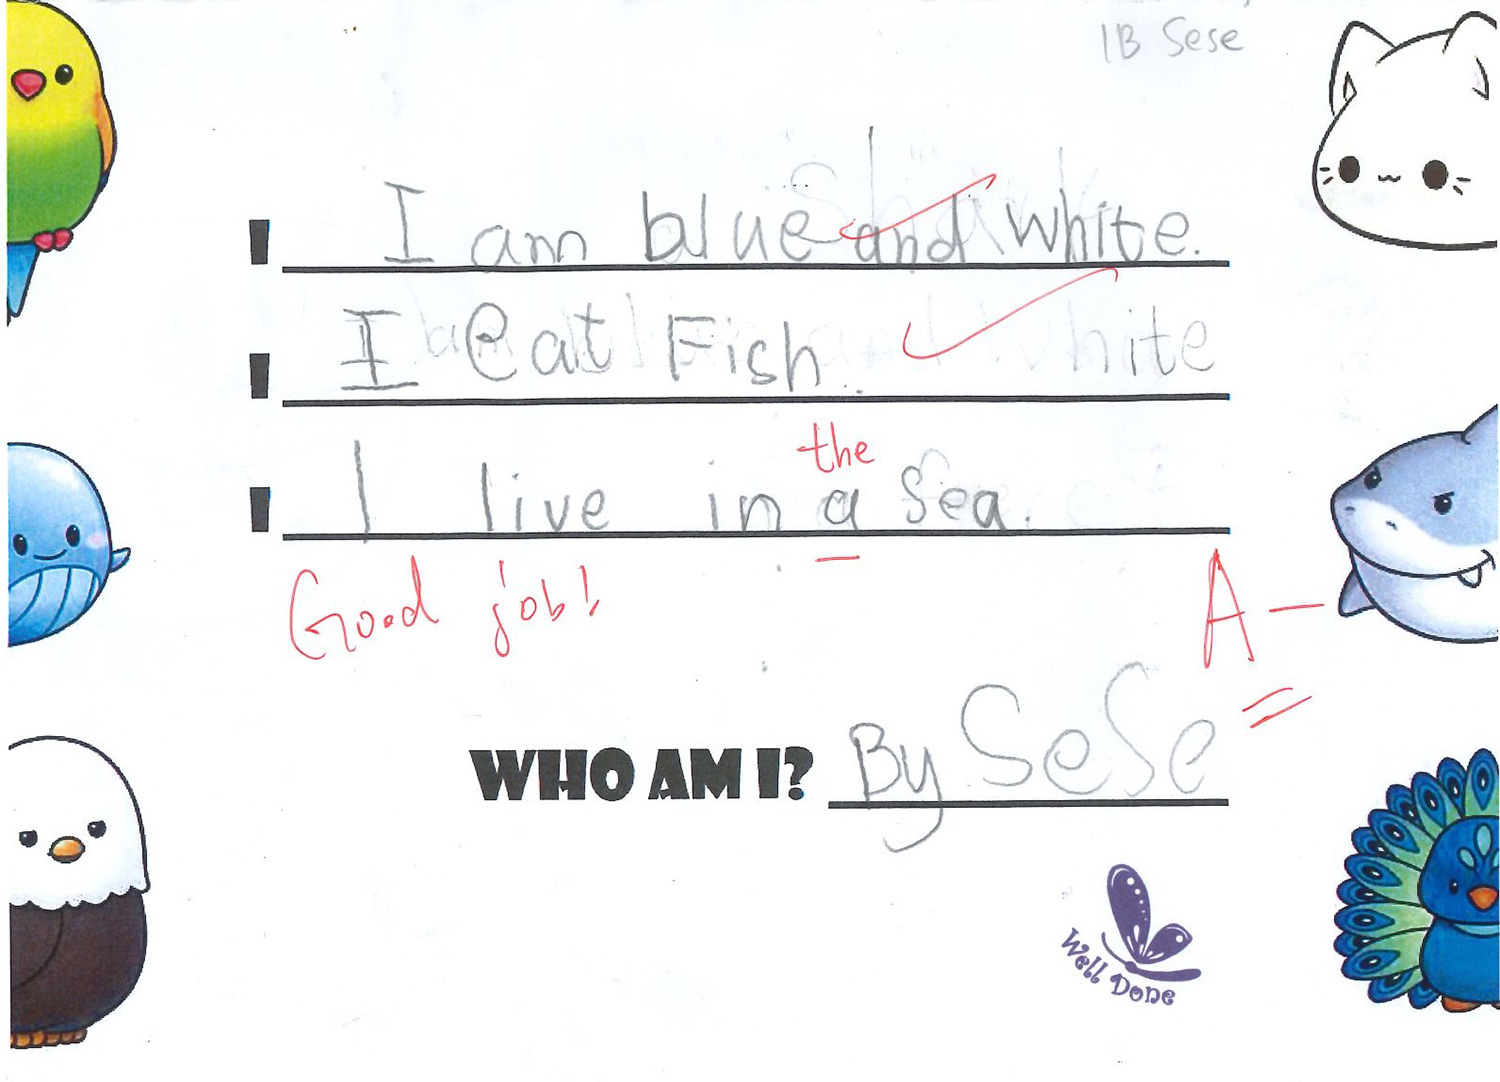 1B Sese
I am blue and white.
I eat Fish.
the
I live in a sea.
Good job!
A-
WHO AM I? By SeSe
Well Done